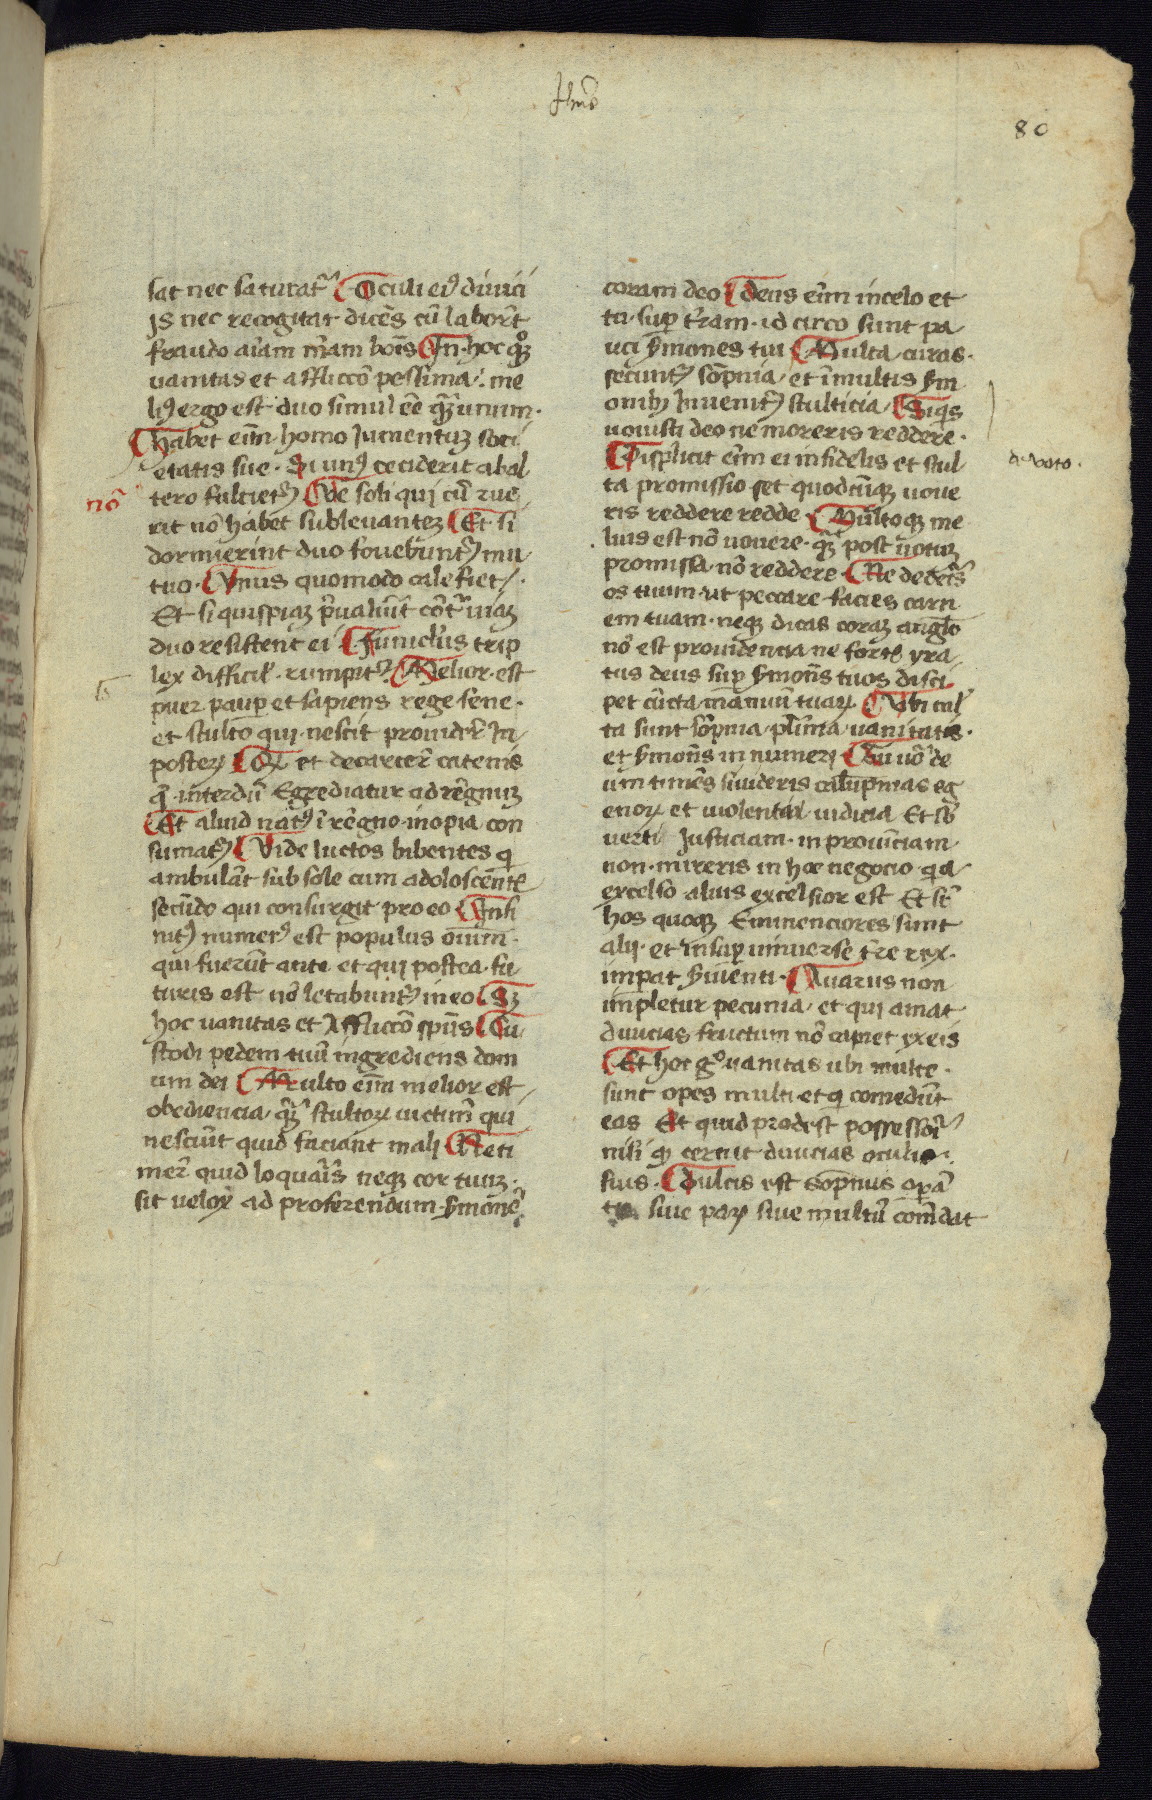 80
sat nec saturat᷑ Oculi ei⁹ diuici
js nec recogitat dice᷑s cu᷑ labor᷑t
fraudo ai᷑am m᷑am bo᷑is In hoc q᷑q
uanitas et affliccō pessima me
li⁹ ergo est duo simul ēe q᷑ʒ unum
Habet eni᷑m homo Jumentuʒ soci
etatis sue Si un⁹ ceciderit ab al
tero fulciet᷑
nō
Ve soli qui cū rue
rit nō habet subleuanteʒ Et si
dormierint duo fouebunt᷑ mu
tuo Vnus quomodo calefiet
Et si quispiaʒ p᷑ualuīt cōt᷑ unaʒ
duo resistent ei funicl᷑us trip
lex difficil᷑ rumpit᷑ Melior est
puer paup et sapiens rege sene
et stulto qui nescit prouider᷑ in
posteꝝ Qꝛ et de carcer᷑ catenis
q᷑ interdū Egrediatur ad rēgnuʒ
Et aliud nat⁹ ī rēgno inopia con
sumat᷑ Vide luctos bibentes q
ambulāt sub sole cum adoloscent᷑
secūdo qui consurgit pro eo Infi
nit⁹ numer⁹ est populus oīum
qui fuerūt ante et qui postea fu
turis est nō letabunt᷑ in eo Sʒ
hoc uanitas et Affliccō spūs Cu
stodi pedem tuū ingrediens dom
um dei Multo eīm melior est
obediencia q᷑ʒ stultoꝝ uictim᷑ qui
nesciūt quid faciant mali Ne ti
mer᷑ quid loquār᷑s neqʒ cor tuuʒ
sit uelox ad proferendum s᷑monē
coram deo Deus eīm in celo et
tu sup t᷑ram id circo sunt pa
uci s᷑mones tui Multa curas
secunt᷑ sōpnia et ī multis s᷑m
onibꝫ Inuenit᷑ stulticia Siq᷑s
uouisti deo ne moreris reddere
Displicit eīm ei infidelis et stul
de voto
ta promissio set quodcūqʒ uoue
ris reddere redde Multoqʒ me
lius est nō uouere q᷑ʒ post uotuʒ
promissa nō reddere Ne deder᷑s
os tuum ut peccare facies carn
em tuam neqʒ dicas coraʒ anglō
nō est prouidencia ne fort᷑ yra
tus deus sup s᷑mon᷑s tuos disci
pet cūcta manuū tuaꝝ Vbi mul᷑
ta sunt sōpnia pl᷑īma uanitatis
et s᷑mon᷑s in numeri Tu uō de
um timēs si uideris calūpnias eg
enoꝝ et uiolenta iudicia Et sb᷑
uerti Justiciam in prouīciam
non mireris in hoc negocio q᷑a
excelso alius excelsior est Et s᷑t
hos quoqʒ Eminenciores sunt
alij et insup uniuerse t᷑re rex
impat s᷑uienti Auarus non
impletur pecunia et qui amat
diuicias fructum nō capiet yx eis
Et hoc g᷑o uanitas ubi multe
sunt opes multi et q comedūt
eas Et quid prodest possessōr᷑
nisi qʒ cernit diuicias oculis
suis Dulcis est sompnus opā᷑
ti siue paꝝ siue multū com᷑dat